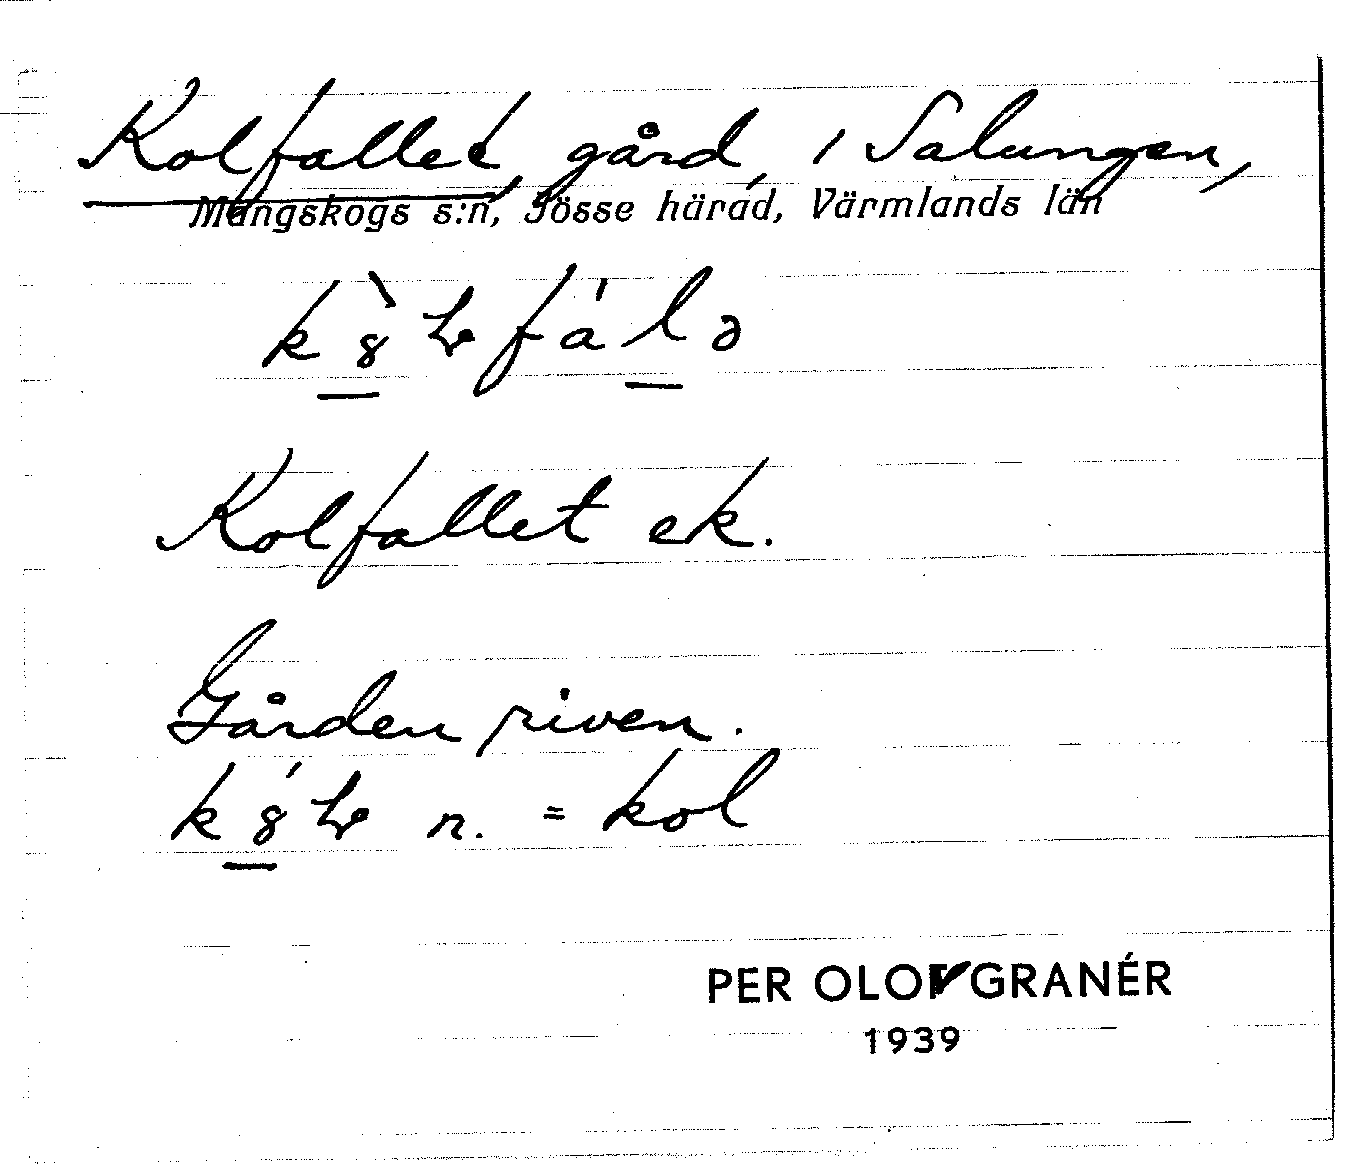 Kolfallet, gård, i Salungen,
Mangskogs s:n, Jösse härad, Värmlands län
Kolfallet ek.
Gården riven.
n. = kol
PER OLOV GRANÉR
1939